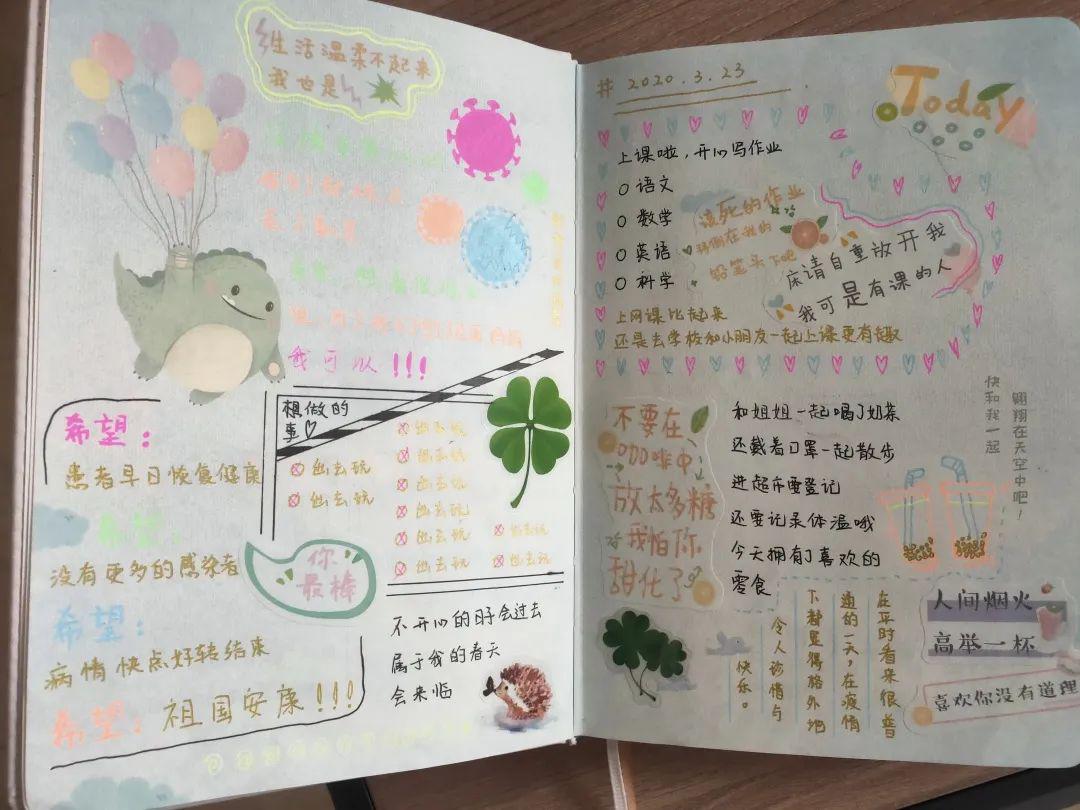 生活温柔不起来
我也是
我可以!!!
希望:
患者早日恢复健康
希望:
没有更多的感染者
希望:
病情快点好转结束
希望:祖国安康!!!
想做的
事
出去玩
出去玩
出去玩
出去玩
出去玩
出去玩
出去玩
出去玩
出去玩
出去玩
你
最棒
不开心的日子会过去
属于我的春天
会来临
# 2020.3.23
Today
上课啦,开心写作业
语文
数学
英语
科学
该死的作业
拜倒在我的
铅笔头下吧
床请自重放开我
我可是有课的人
上网课比起来
还是去学校和小朋友一起上课更有趣
不要在
咖啡中
放太多糖
我怕你
甜化了
和姐姐一起喝了奶茶
还戴着口罩一起散步
进超市要登记
还要记录体温哦
今天拥有了喜欢的
零食
快和我一起
翱翔在天空中吧!
在平时看来很普
通的一天,在疫情
下都显得格外地
令人珍惜与
快乐。
人间烟火
高举一杯
喜欢你没有道理